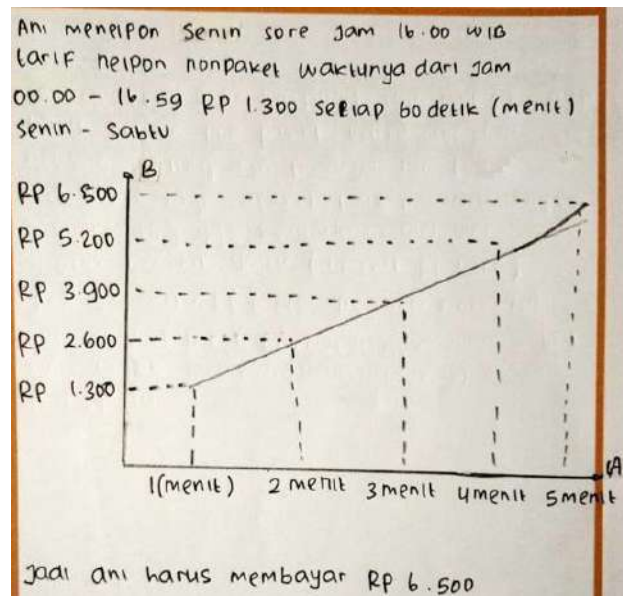 Ani menelpon Senin sore Jam 16.00 WIB
tarif nelpon nonpaket waktunya dari Jam
00.00 - 16.59 RP 1.300 setiap 60 detik (menit)
Senin - Sabtu
B
RP 6.500
RP 5.200
RP 3.900
RP 2.600
RP 1.300
A
1(menit) 2 menit 3 menit 4 menit 5 menit
Jadi ani harus membayar RP 6.500